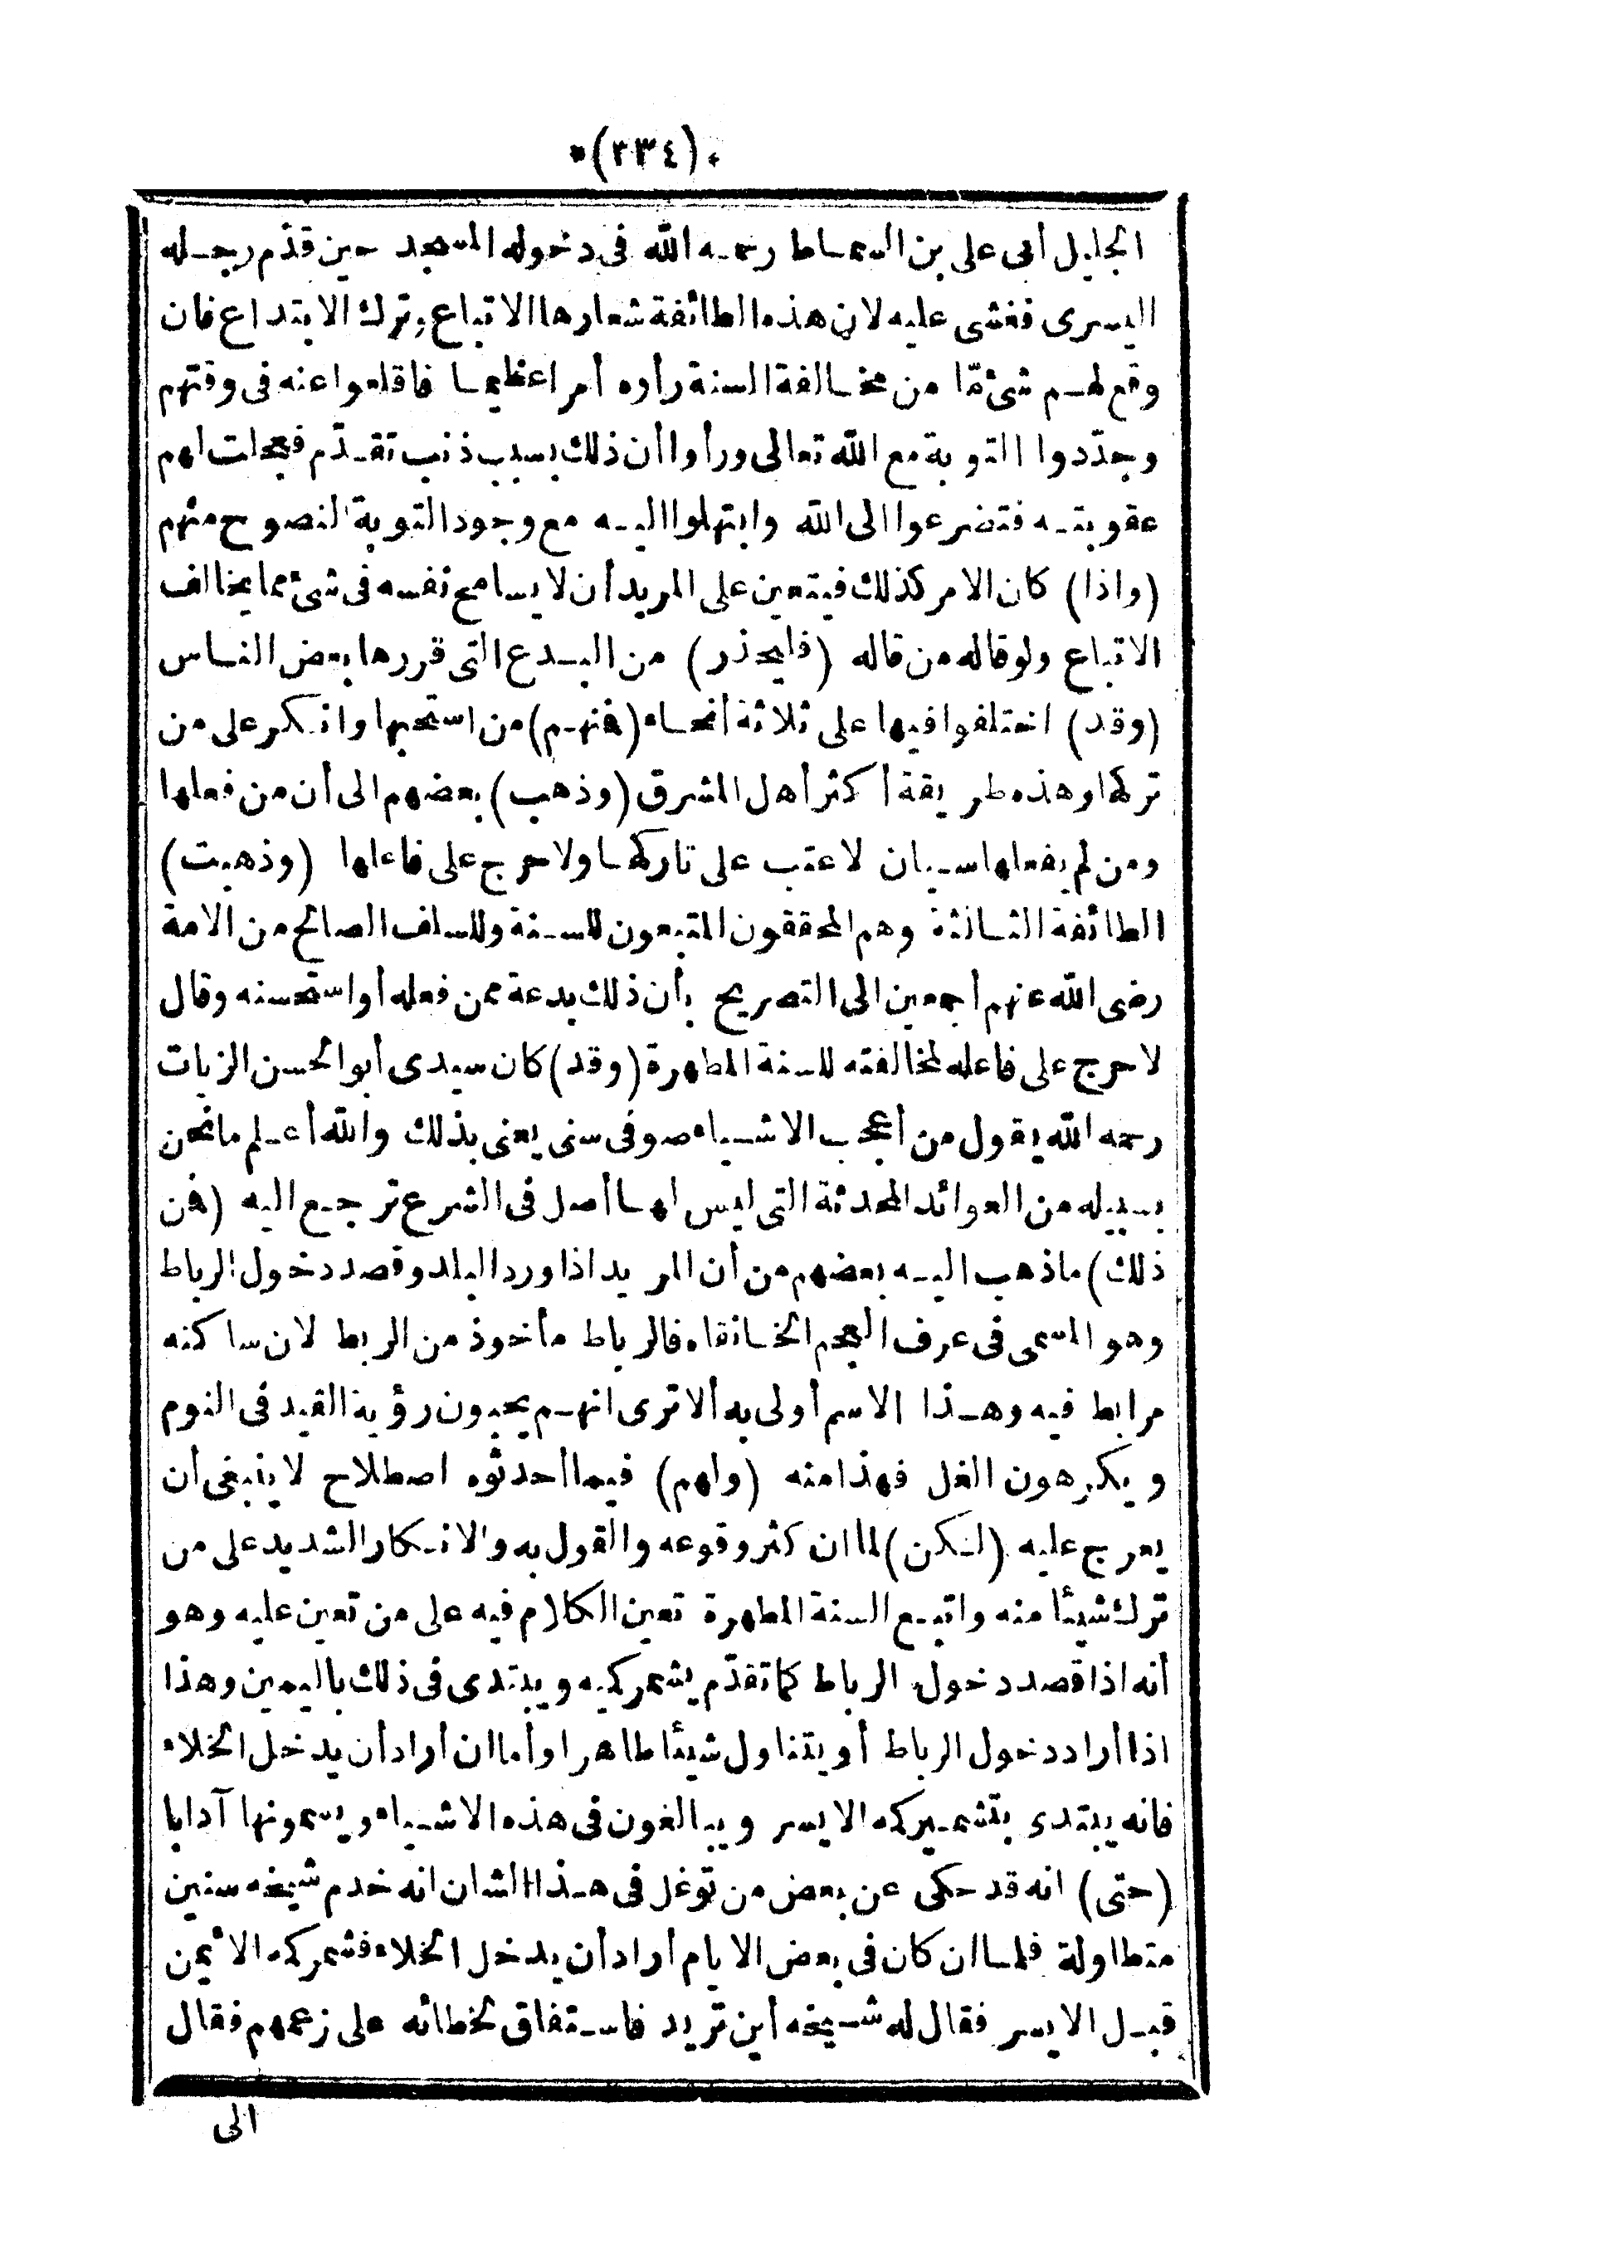 *(٢٣٤)*
الجليل أبى على بن السماط رحمه الله فى دخوله المسجد حين قدّم رجله
اليسرى فغشى عليه لان هذه الطائفة شعارها الاتباع وترك الابتداع فان
وقع لهم شئ مّا من مخالفة السنة رأوه أمرا عظيما فاقلعوا عنه فى وقتهم
وجدّدوا التوبة مع الله تعالى ورأوا أن ذلك بسبب ذنب تقدّم فعجلت لهم
عقوبته فتضرعوا الى الله وابتهلوا اليه مع وجود التوبة النصوح منهم
(واذا) كان الامر كذلك فيتعين على المريد أن لا يسامح نفسه فى شئ مما يخالف
الاتباع ولو قاله من قاله (فليحذر) من البدع التى قررها بعض الناس
(وقد) اختلفوا فيها على ثلاثة أنحاء (فنهم) من استحبها وانكر على من
تركها وهذه طريقة أكثر أهل المشرق (وذهب) بعضهم الى أن من فعلها
ومن لم يفعلها سيان لا عتب على تاركها ولا حرج على فاعلها (وذهبت)
الطائفة الثالثة وهم المحققون المتبعون للسنة وللسلف الصالح من الامة
رضى الله عنهم أجمعين الى التصريح بأن ذلك بدعة ممن فعله أو استحسنه وقال
لا حرج على فاعله لمخالفته للسنة المطهرة (وقد) كان سيدى أبو الحسن الزيات
رحمه الله يقول من أعجب الاشياء صوفى سنى يعنى بذلك والله أعلم ما نحن
بسبيله من العوائد المحدثة التى ليس لها أصل فى الشرع ترجع اليه (فن
ذلك) ما ذهب اليه بعضهم من أن المريد اذا ورد البلد وقصد دخول الرباط
وهو المسمى فى عرف العجم الخانقاه فالرباط مأخوذ من الربط لان ساكنه
مرابط فيه وهذا الاسم أولى به ألا ترى انهم يحبون رؤية القيد فى النوم
ويكرهون الغل فهذا منه (ولهم) فيما أحدثوه اصطلاح لا ينبغى أن
يعرج عليه (لكن) لما ان كثر وقوعه والقول به والانكار الشديد على من
ترك شيئا منه واتبع السنة المطهرة تعين الكلام فيه على من تعين عليه وهو
أنه اذا قصد دخول الرباط كما تقدّم يشمر كميه ويبتدى فى ذلك باليمين وهذا
اذا أراد دخول الرباط أو يتناول شيئا طاهرا وأما ان أراد أن يدخل الخلاء
فانه يبتدى بتشمير كمه الايسر ويبالغون فى هذه الاشياء ويسمونها آدابا
(حتى) انه قد حكى عن بعض من توغل فى هذا الشان انه خدم شيخه سنين
متطاولة فلما ان كان فى بعض الايام أراد أن يدخل الخلاء فشمر كمه الايمن
قبل الايسر فقال له شيخه أين تريد فاستفاق لخطائه على زعمهم فقال
الى